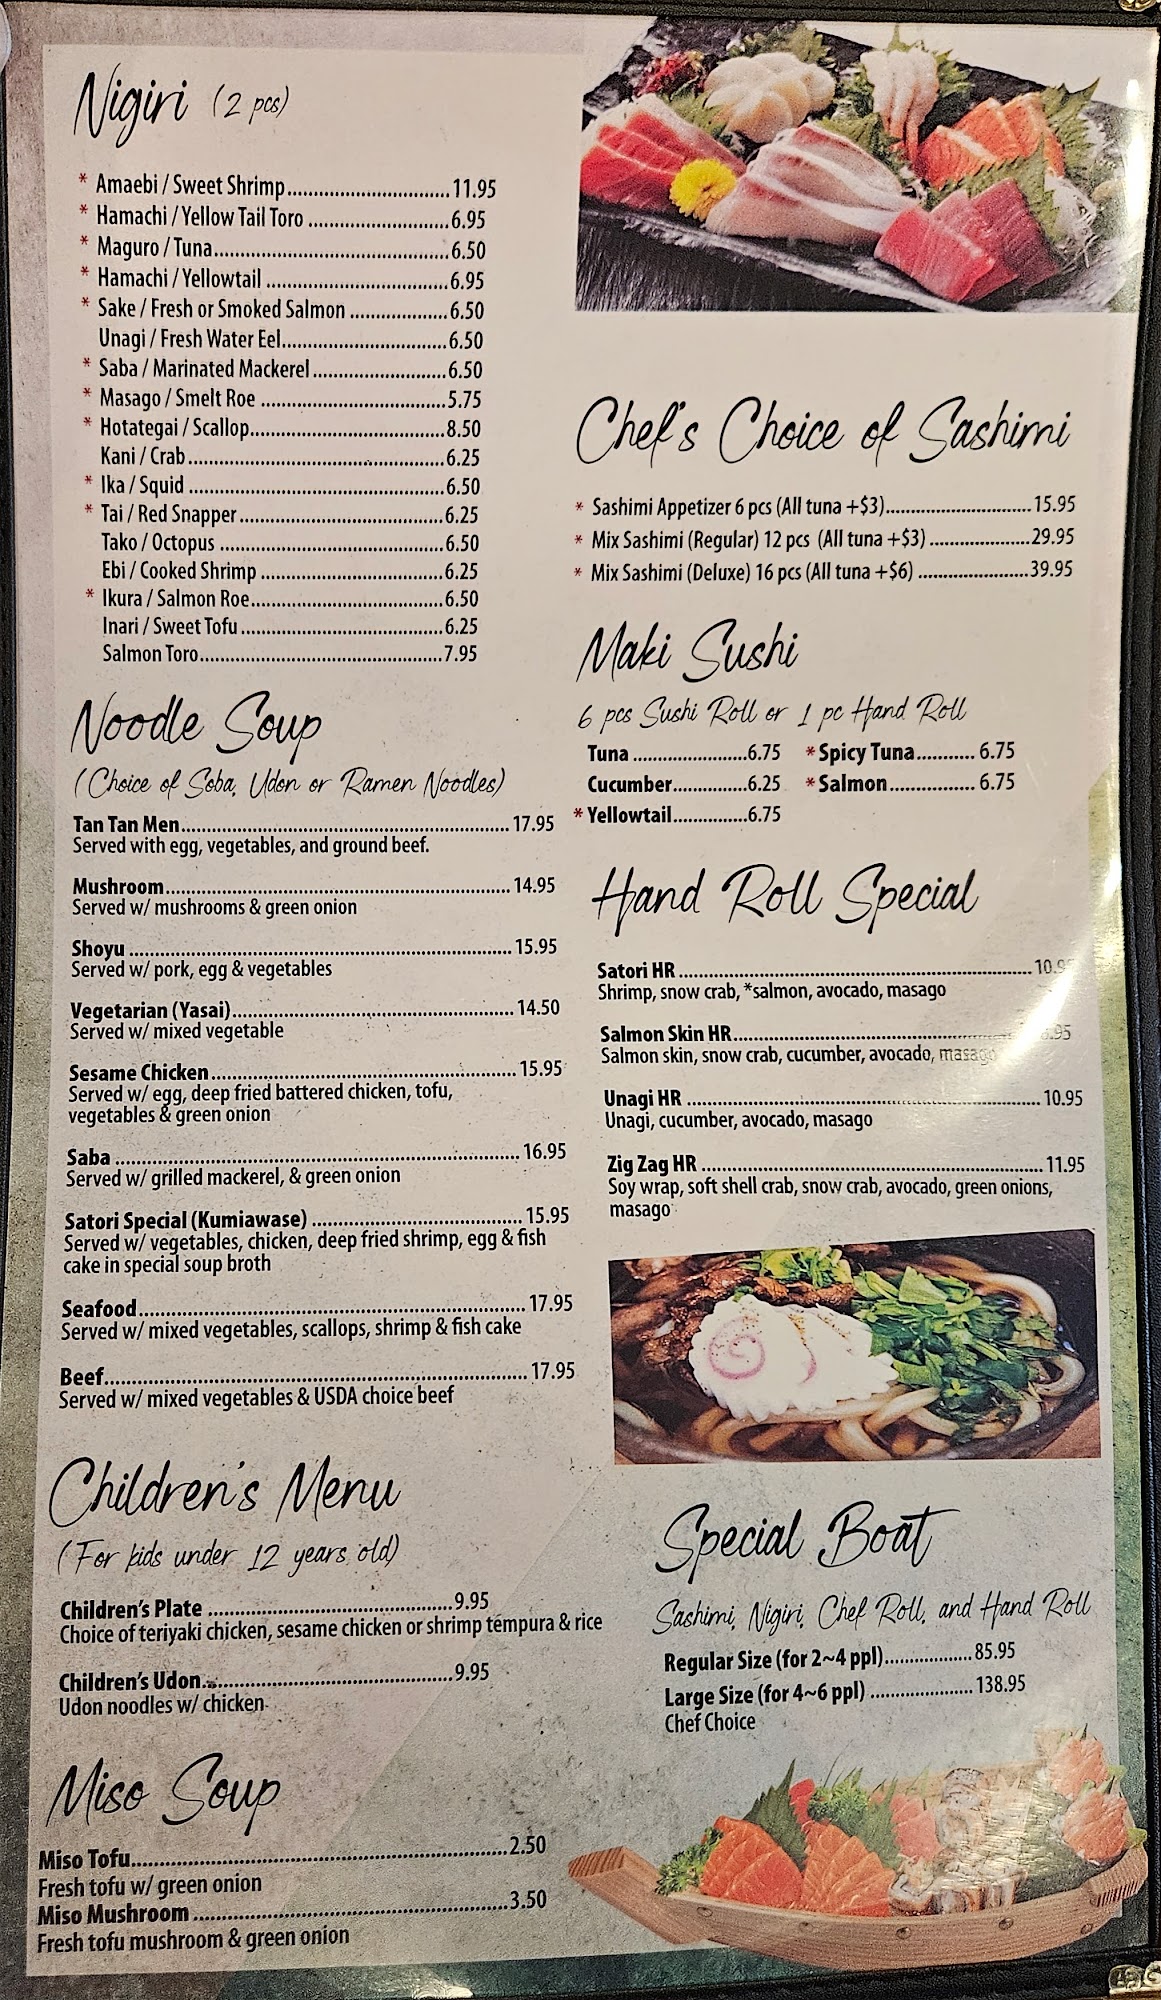 Nigiri (2 pcs)
* Amaebi / Sweet Shrimp 11.95
* Hamachi / Yellow Tail Toro 6.95
* Maguro / Tuna 6.50
* Hamachi / Yellowtail 6.95
* Sake / Fresh or Smoked Salmon 6.50
Unagi / Fresh Water Eel 6.50
* Saba / Marinated Mackerel 6.50
* Masago / Smelt Roe 5.75
* Hotategai / Scallop 8.50
Kani / Crab 6.25
* Ika / Squid 6.50
* Tai / Red Snapper 6.25
Tako / Octopus 6.50
Ebi / Cooked Shrimp 6.25
* Ikura / Salmon Roe 6.50
Inari / Sweet Tofu 6.25
Salmon Toro 7.95
Noodle Soup
(Choice of Soba, Udon or Ramen Noodles)
Tan Tan Men 17.95
Served with egg, vegetables, and ground beef.
Mushroom 14.95
Served w/ mushrooms & green onion
Shoyu 15.95
Served w/ pork, egg & vegetables
Vegetarian (Yasai) 14.50
Served w/ mixed vegetable
Sesame Chicken 15.95
Served w/ egg, deep fried battered chicken, tofu,
vegetables & green onion
Saba 16.95
Served w/ grilled mackerel, & green onion
Satori Special (Kumiawase) 15.95
Served w/ vegetables, chicken, deep fried shrimp, egg & fish
cake in special soup broth
Seafood 17.95
Served w/ mixed vegetables, scallops, shrimp & fish cake
Beef 17.95
Served w/ mixed vegetables & USDA choice beef
Children's Menu
(For kids under 12 years old)
Children's Plate 9.95
Choice of teriyaki chicken, sesame chicken or shrimp tempura & rice
Children's Udon 9.95
Udon noodles w/ chicken
Miso Soup
Miso Tofu 2.50
Fresh tofu w/ green onion
Miso Mushroom 3.50
Fresh tofu mushroom & green onion
Chef's Choice of Sashimi
* Sashimi Appetizer 6 pcs (All tuna +$3) 15.95
* Mix Sashimi (Regular) 12 pcs (All tuna +$3) 29.95
* Mix Sashimi (Deluxe) 16 pcs (All tuna +$6) 39.95
Maki Sushi
6 pcs Sushi Roll or 1 pc Hand Roll
Tuna 6.75 * Spicy Tuna 6.75
Cucumber 6.25 * Salmon 6.75
* Yellowtail 6.75
Hand Roll Special
Satori HR
Shrimp, snow crab, *salmon, avocado, masago
Salmon Skin HR
Salmon skin, snow crab, cucumber, avocado, masago
Unagi HR 10.95
Unagi, cucumber, avocado, masago
Zig Zag HR 11.95
Soy wrap, soft shell crab, snow crab, avocado, green onions,
masago
Special Boat
Sashimi, Nigiri, Chef Roll, and Hand Roll
Regular Size (for 2~4 ppl) 85.95
Large Size (for 4~6 ppl) 138.95
Chef Choice